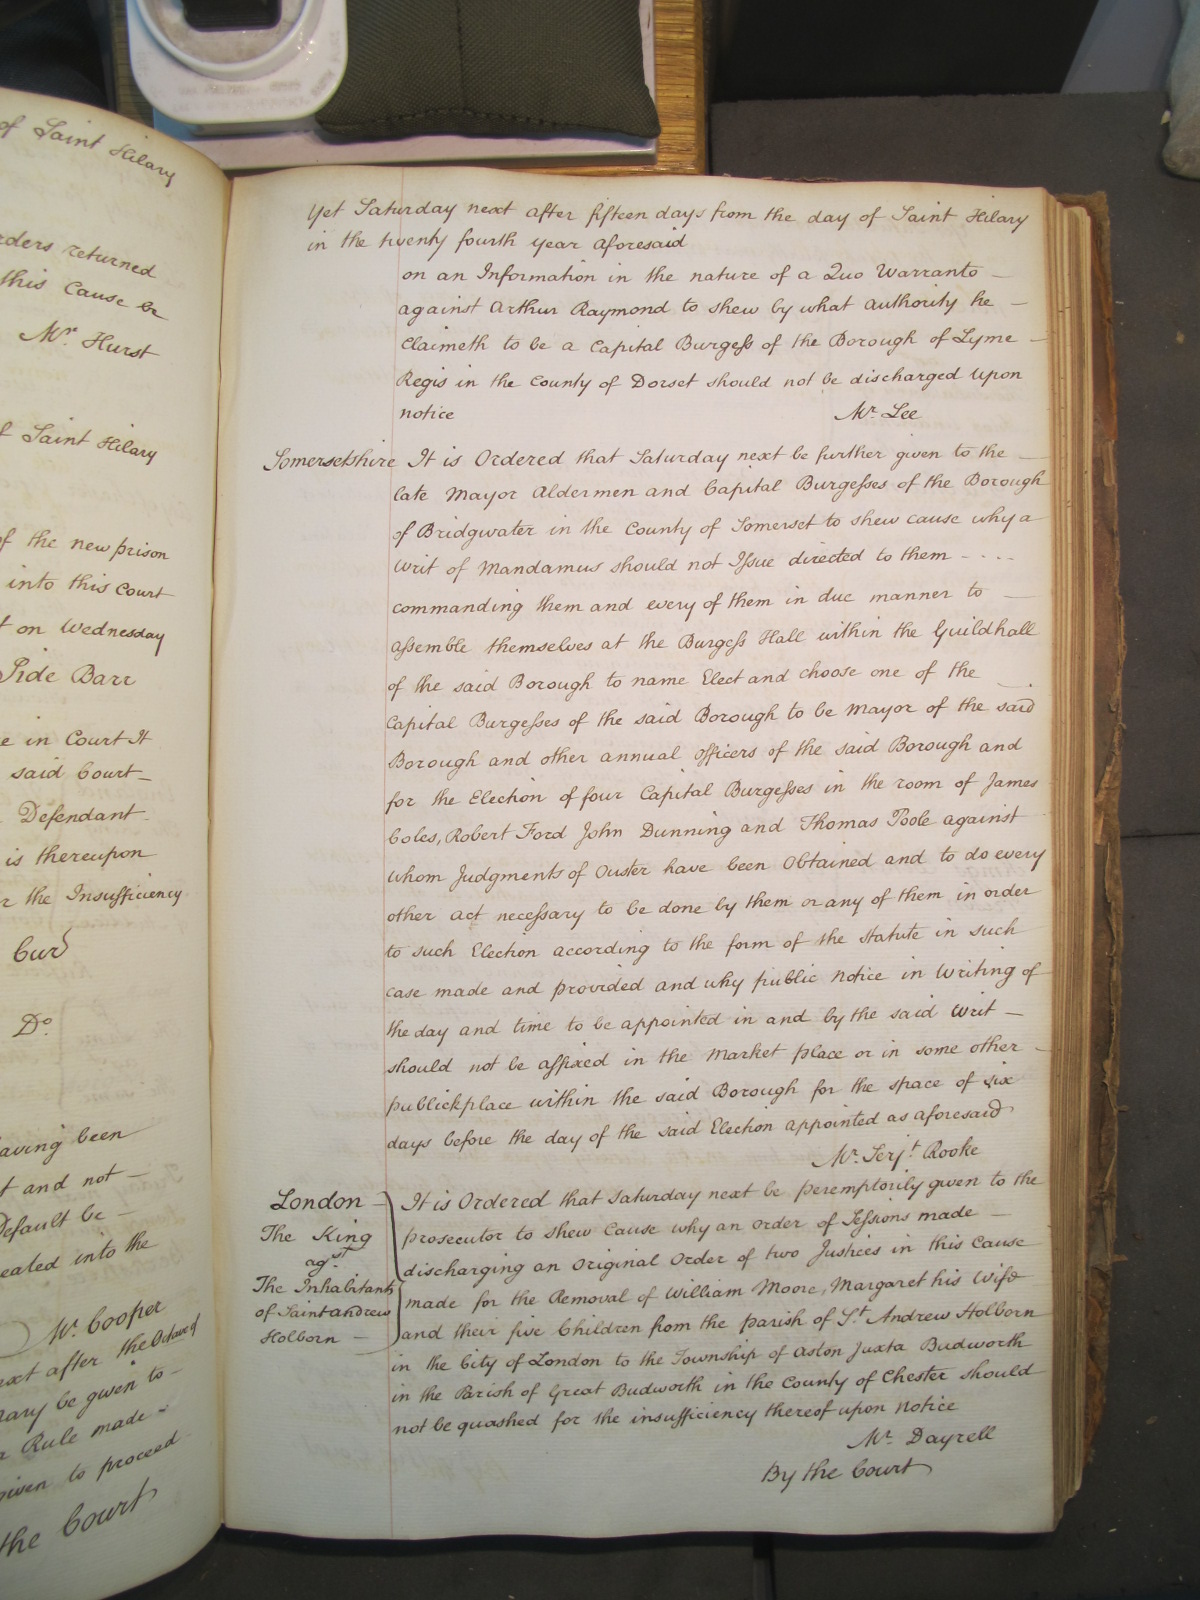 of Saint Hilary
orders returned
this Cause be
Mr. Hurst
Saint Hilary
of the new prison
into this Court
on Wednesday
Side Barr
in Court It
said Court
Defendant
is thereupon
the Insufficiency
Cur
Do.
having been
and not
Default be
into the
Mr. Cooper
next after the Octave of
be given to
Rule made
given to proceed
the Court
Yet Saturday next after fifteen days from the day of Saint Hilary
in the twenty fourth year aforesaid
on an Information in the nature of a Quo Warranto
against Arthur Raymond to shew by what authority he
Claimeth to be a Capital Burgess of the Borough of Lyme
Regis in the County of Dorset should not be discharged Upon
notice Mr. Lee
Somersetshire It is Ordered that Saturday next be further given to the
late Mayor Aldermen and Capital Burgesses of the Borough
of Bridgwater in the County of Somerset to shew cause why a
Writ of Mandamus should not Issue directed to them - - - -
commanding them and every of them in due manner to
assemble themselves at the Burgess Hall within the Guildhall
of the said Borough to name Elect and choose one of the
Capital Burgesses of the said Borough to be Mayor of the said
Borough and other annual officers of the said Borough and
for the Election of four Capital Burgesses in the room of James
Coles, Robert Ford John Dunning and Thomas Poole against
whom Judgments of Ouster have been Obtained and to do every
other act necessary to be done by them or any of them in order
to such Election according to the form of the Statute in such
case made and provided and why public Notice in Writing of
the day and time to be appointed in and by the said Writ
should not be affixed in the Market place or in some other
publick place within the said Borough for the space of six
days before the day of the said Election appointed as aforesaid
Mr. Serjt. Rooke
London
The King
agst.
The Inhabitants
of Saint Andrew
Holborn
It is Ordered that Saturday next be peremptorily given to the
prosecutor to shew Cause why an Order of Sessions made
discharging an Original Order of two Justices in this Cause
made for the Removal of William Moore, Margaret his Wife
and their five Children from the parish of St. Andrew Holborn
in the City of London to the Township of Aston Juxta Budworth
in the Parish of Great Budworth in the County of Chester should
not be quashed for the insufficiency thereof upon Notice
Mr. Dayrell
By the Court